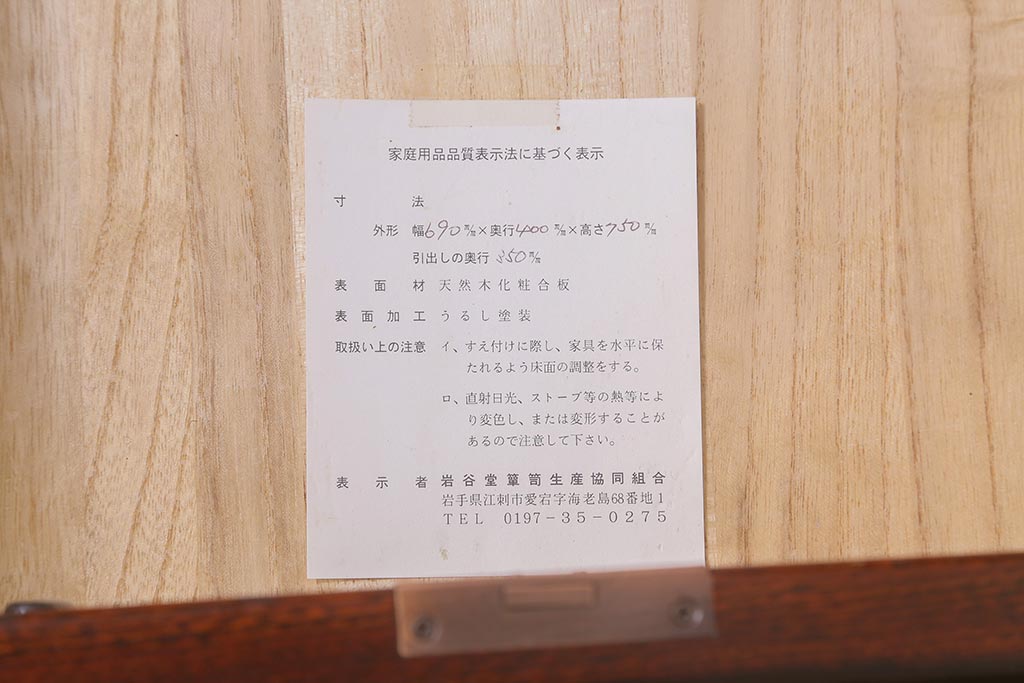 家庭用品品質表示法に基づく表示
寸法
外形 幅690㍉×奥行400㍉×高さ750㍉
引出しの奥行 350㍉
表面材 天然木化粧合板
表面加工 うるし塗装
取扱い上の注意 イ、すえ付けに際し、家具を水平に保
たれるよう床面の調整をする。
ロ、直射日光、ストーブ等の熱等によ
り変色し、または変形することが
あるので注意して下さい。
表示者 岩谷堂簞笥生産協同組合
岩手県江刺市愛宕字海老島68番地1
TEL 0197-35-0275